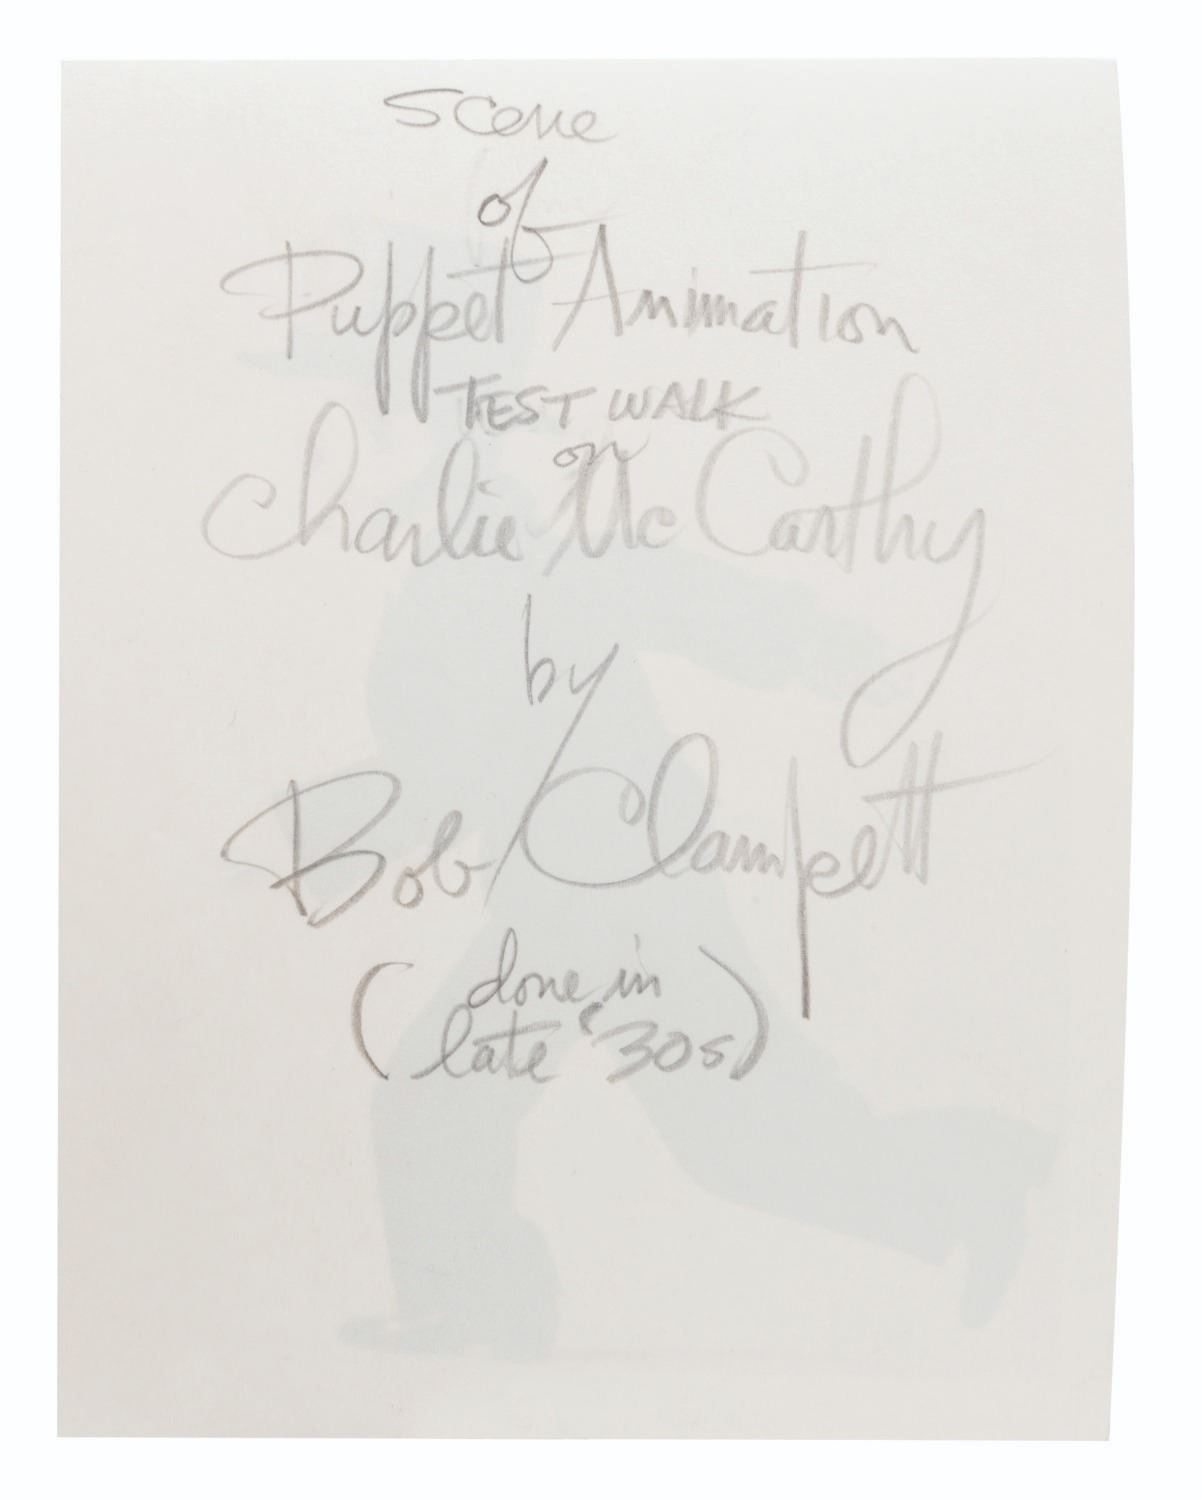 Scene
of
Puppet Animation
TEST WALK
on
Charlie McCarthy
by
Bob Clampett
(done in
late '30s)